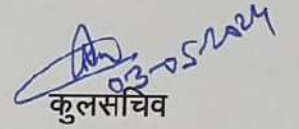 03-05-2024
कुलसचिव